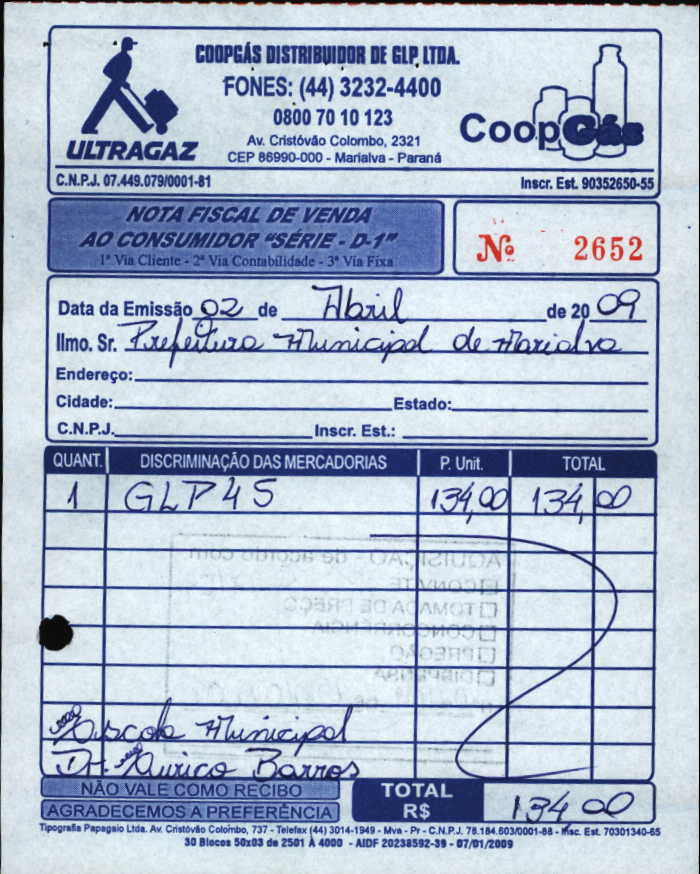 COOPGÁS DISTRIBUIDOR DE GLP LTDA.
FONES: (44) 3232-4400
0800 70 10 123
Av. Cristóvão Colombo, 2321
CEP 86990-000 - Marialva - Paraná
ULTRAGAZ
CoopGás
C.N.P.J. 07.449.079/0001-81
Inscr. Est. 90352650-55
NOTA FISCAL DE VENDA
AO CONSUMIDOR "SÉRIE - D-1"
1ª Via Cliente - 2ª Via Contabilidade - 3ª Via Fixa
Nº 2652
Data da Emissão 02 de Abril de 2009
Ilmo. Sr. Prefeitura Municipal de Marialva
Endereço:
Cidade: Estado:
C.N.P.J. Inscr. Est.:
QUANT. DISCRIMINAÇÃO DAS MERCADORIAS P. Unit. TOTAL
1 GLP 45 134,00 134,00
AQUISIÇÃO - de acordo com
CONVITE
TOMADA DE PREÇO
CONCORRÊNCIA
PREGÃO
DISPENSA
Escola Municipal
Dr. Eurico Barros
NÃO VALE COMO RECIBO
AGRADECEMOS A PREFERÊNCIA
TOTAL R$ 134,00
Tipografia Papagaio Ltda. Av. Cristóvão Colombo, 737 - Telefax (44) 3014-1949 - Mva - Pr - C.N.P.J. 78.184.603/0001-88 - Insc. Est. 70301340-65
30 Blocos 50x03 de 2501 À 4000 - AIDF 20238592-39 - 07/01/2009